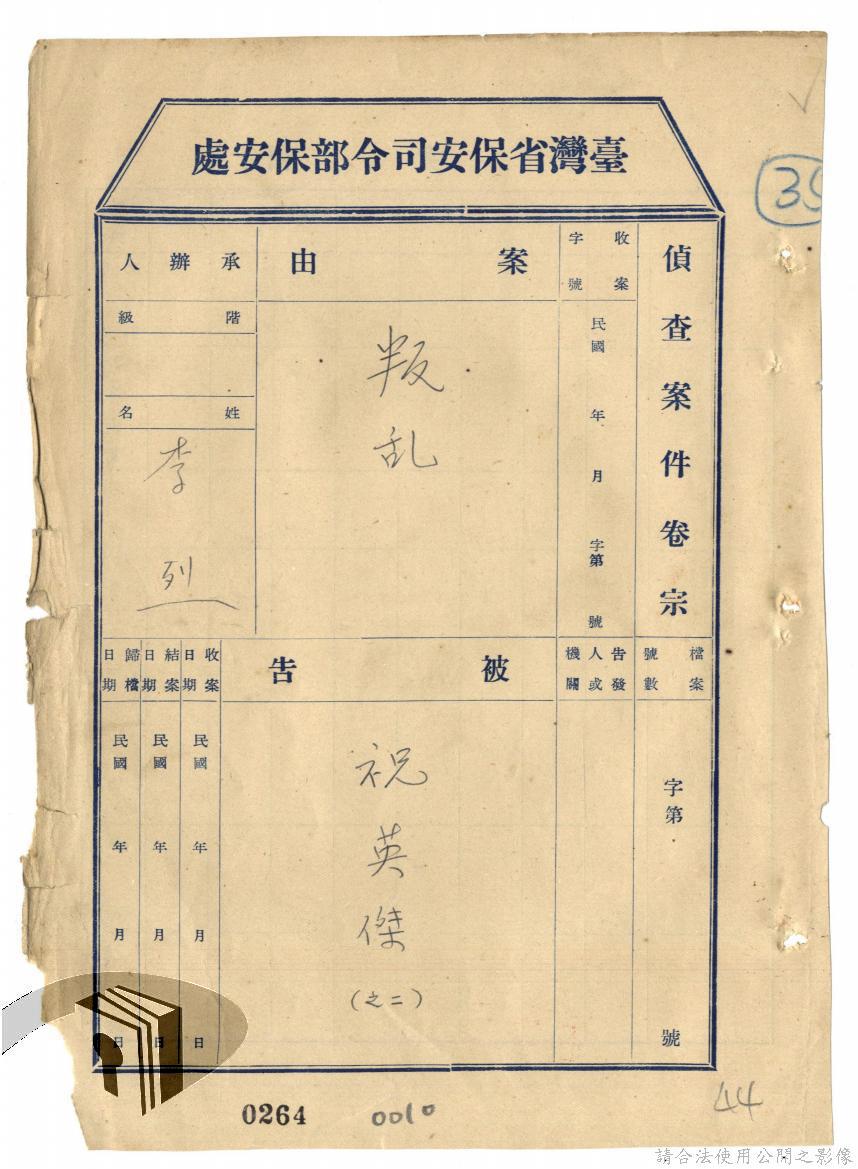 臺灣省保安司令部保安處
偵查案件卷宗
收案字號
民國 年 月 字第 號
案由
叛乱
承辦人
階級
姓名
李列
檔案號數
字第 號
告發人或機關
被告
祝英傑
(之二)
收案日期
民國 年 月 日
結案日期
民國 年 月 日
歸檔日期
民國 年 月 日
0264
0010
44
請合法使用公開之影像